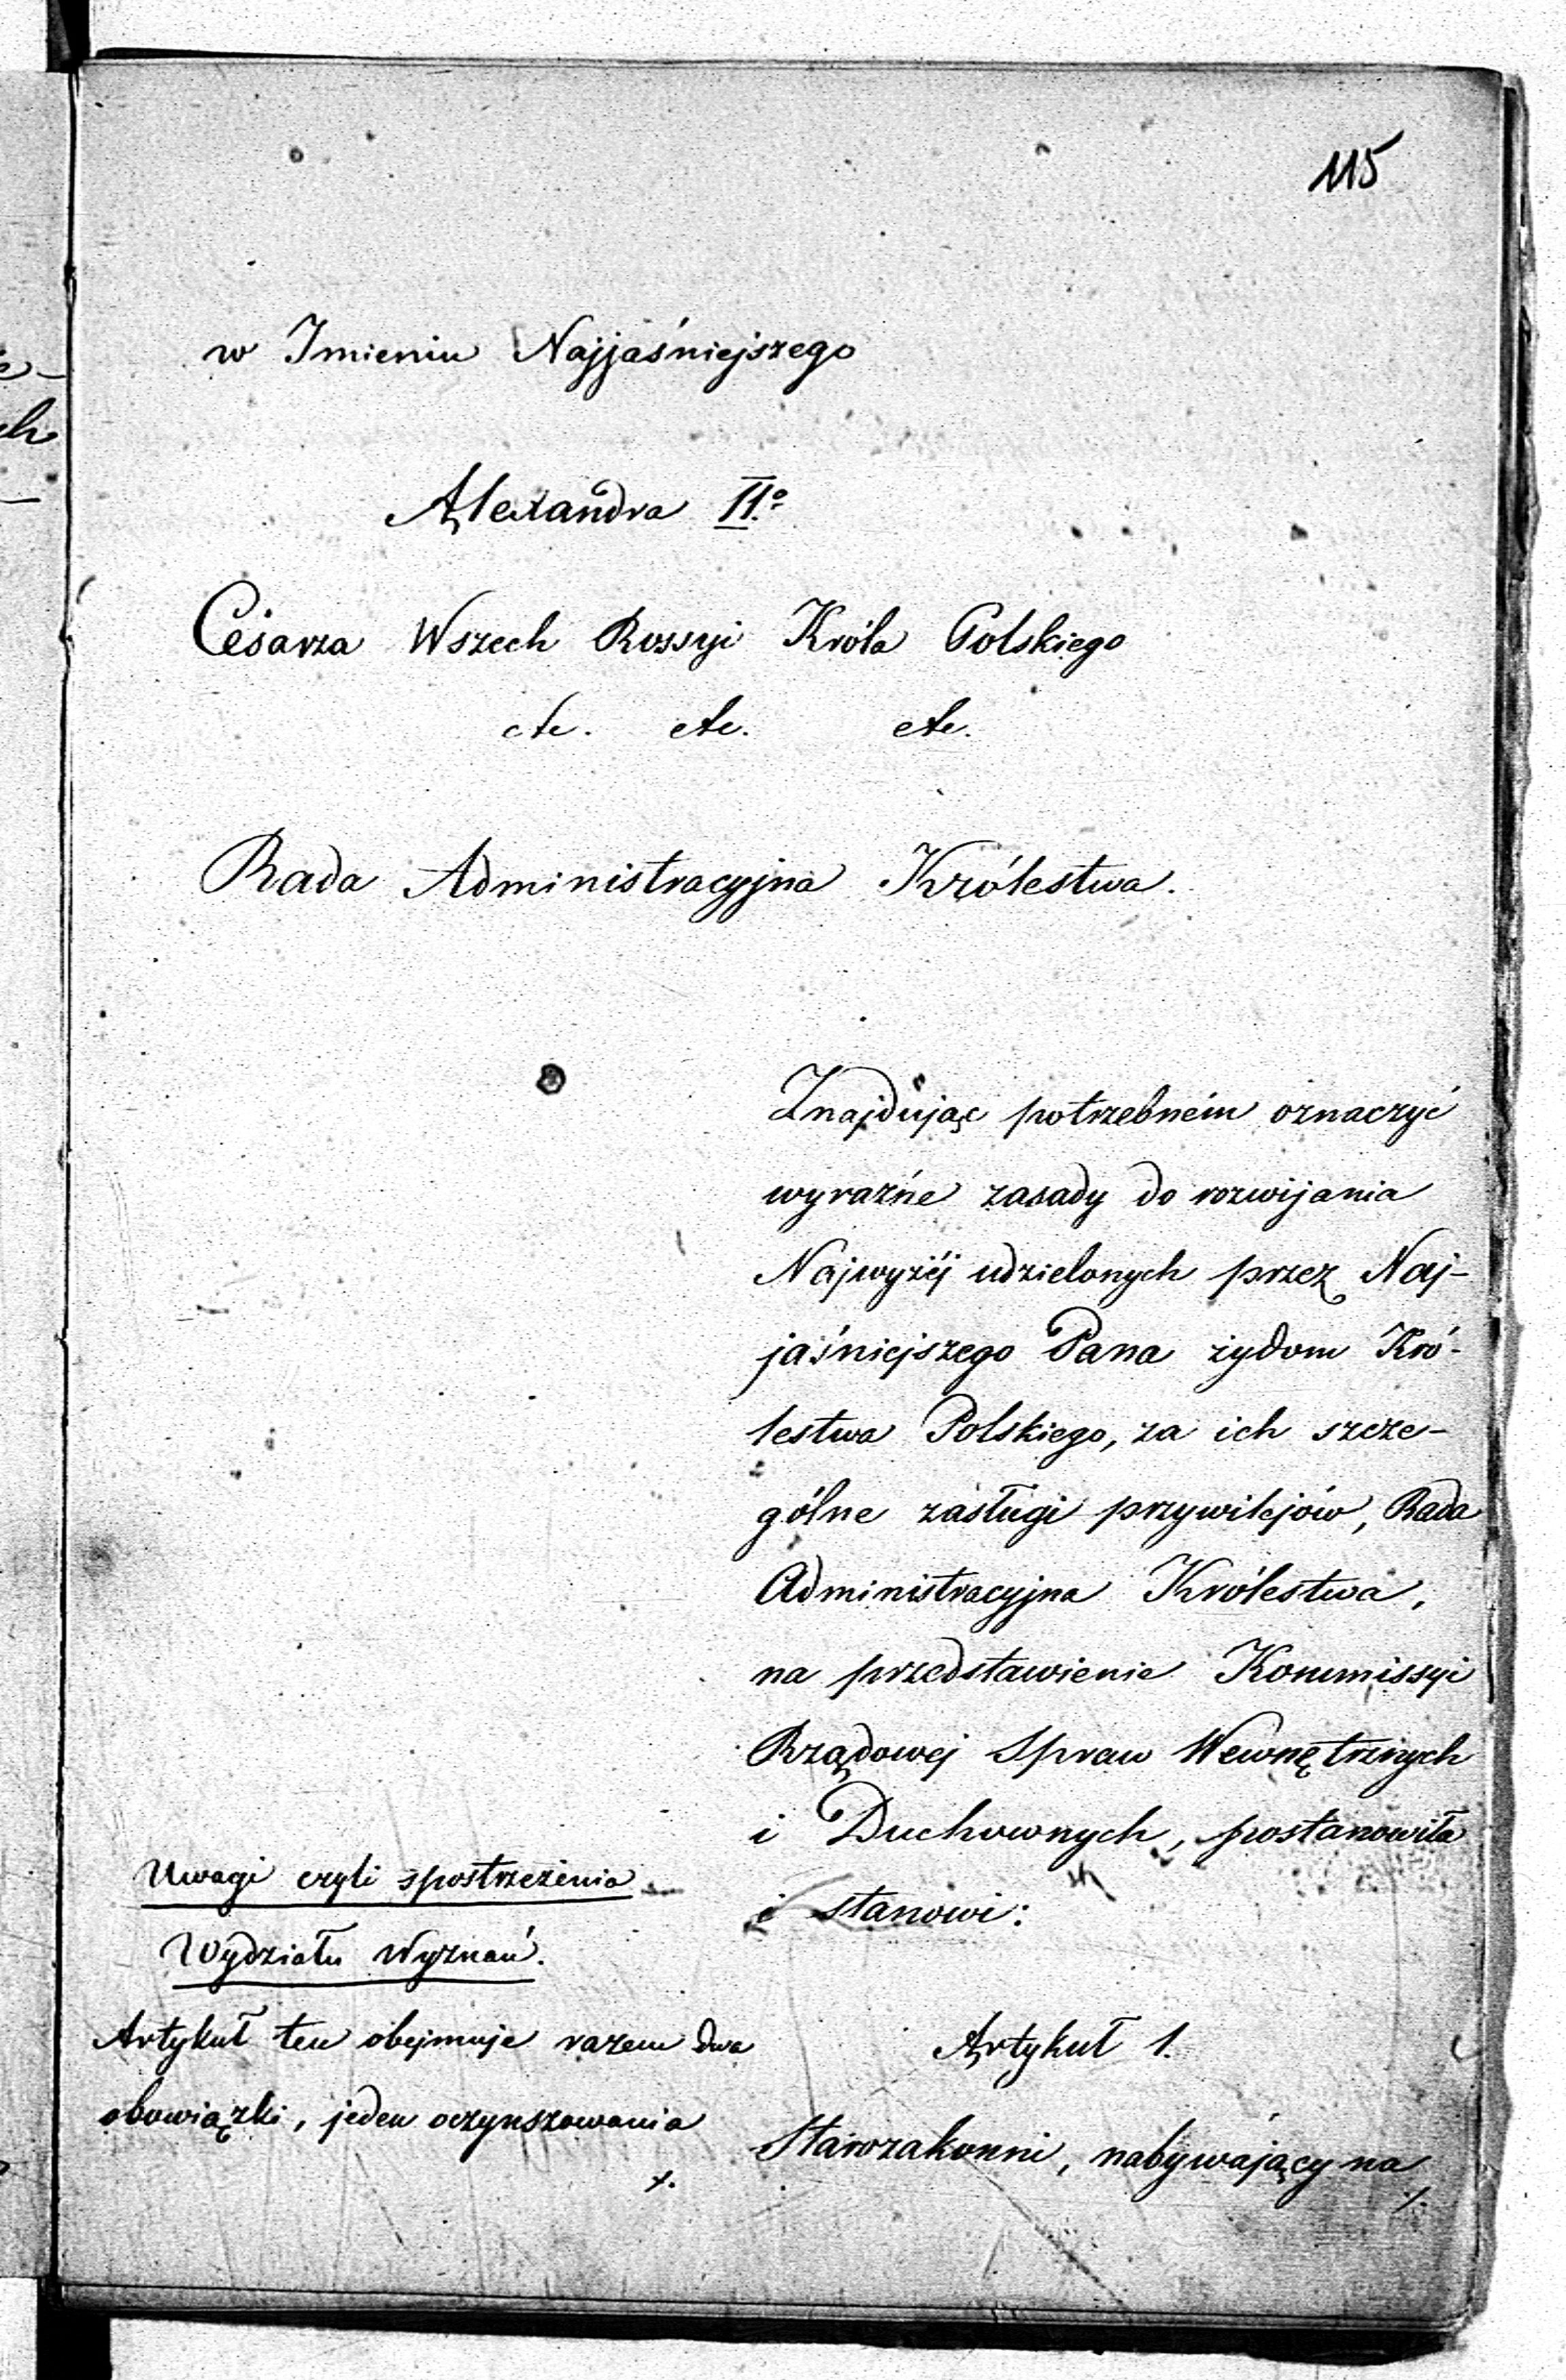 115
w Imieniu Najjaśniejszego
Alexandra II.º
Cesarza Wszech Rossyi Króla Polskiego
etc. etc. etc.
Rada Administracyjna Królestwa.
Znajdując potrzebném oznaczyć
wyraźne zasady do rozwijania
Najwyżéj udzielonych przez Naj-
jaśniejszego Pana żydom Kró-
lestwa Polskiego, za ich szcze-
gólne zasługi przywilejów, Rada
Administracyjna Królestwa,
na przedstawienie Kommissyi
Rządowej Spraw Wewnętrznych
i Duchownych, postanowiła
i stanowi:
Artykuł 1.
Starozakonni, nabywający na
./.
Uwagi czyli spostrzeżenia
Wydziału Wyznań.
Artykuł ten obejmuje razem dwa
obowiązki, jeden oczynszowania
./.